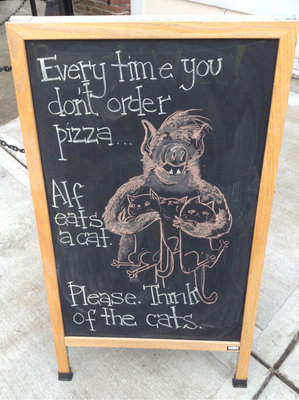 Every time you
don't order
pizza...
Alf
eats
a cat.
Please. Think
of the cats.